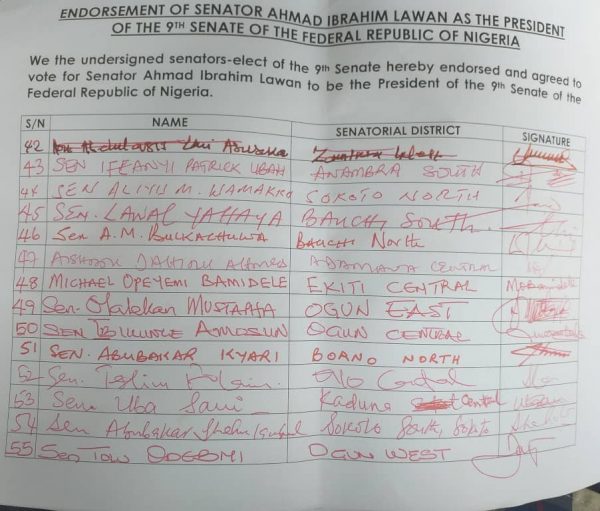 ENDORSEMENT OF SENATOR AHMAD IBRAHIM LAWAN AS THE PRESIDENT
OF THE 9TH SENATE OF THE FEDERAL REPUBLIC OF NIGERIA
We the undersigned senators-elect of the 9th Senate hereby endorsed and agreed to
vote for Senator Ahmad Ibrahim Lawan to be the President of the 9th Senate of the
Federal Republic of Nigeria.
S/N NAME SENATORIAL DISTRICT SIGNATURE
42
43 SEN IFEANYI PATRICK UBAH ANAMBRA SOUTH
44 SEN ALIYU M. WAMAKKO SOKOTO NORTH
45 SEN. LAWAL YAHAYA BAUCHI SOUTH
46 Sen A.M. BULKACHUWA BAUCHI North
47 ADAMAWA CENTRAL
48 MICHAEL OPEYEMI BAMIDELE EKITI CENTRAL
49 Sen. Olalekan MUSTAPHA OGUN EAST
50 SEN IBIKUNLE AMOSUN OGUN CENTRAL
51 SEN. ABUBAKAR KYARI BORNO NORTH
52 Sen. Teslim Folarin. Oyo Central
53 Sen. Uba Sani Kaduna Central
54 Sen Abubakar Shehu Sokoto South, Sokoto
55 Sen TOLU ODEBIYI OGUN WEST